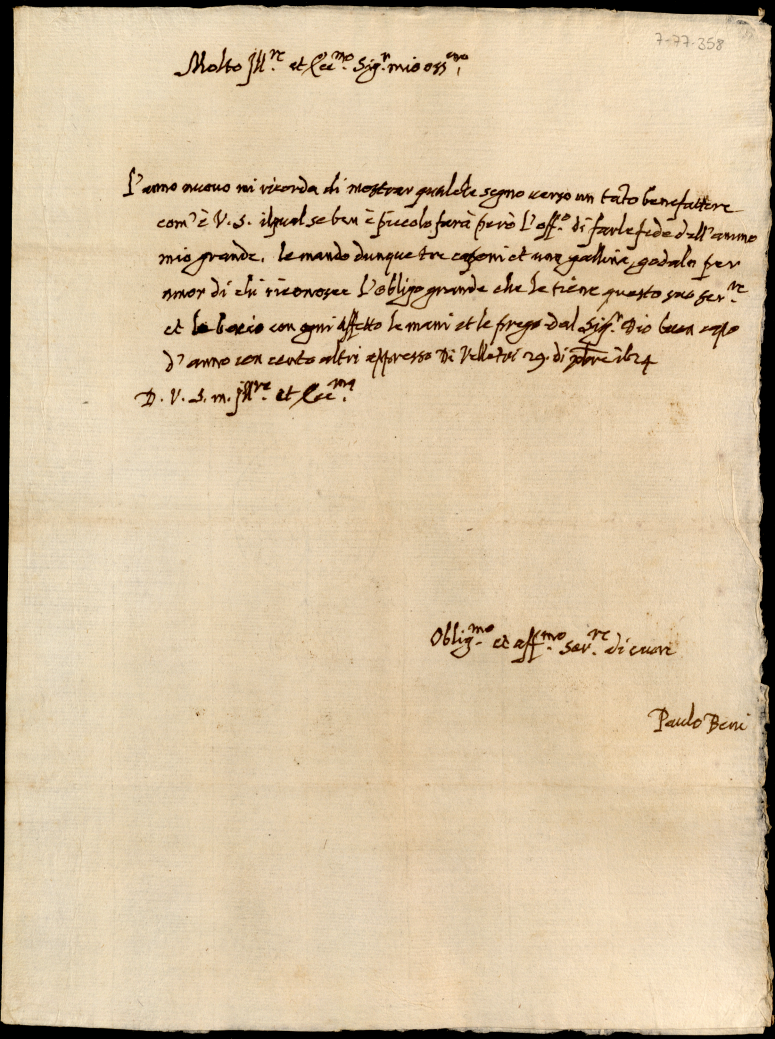 7-77-358
Molto Ill.re et Ecc.mo Sig.r mio oss.mo
L'anno nuovo mi ricorda di mostrar qualche segno verso un tāto benefattore
com'è V. S. il qual se ben è piccolo farà però l'off.o di farle fede dell'animo
mio grande. le mando dunque tre caponi et una gallina, godala per
amor di chi riconosce l'obligo grande che le tiene questo suo ser.re
et le bacio con ogni affetto le mani et le prego dal Sig.r Dio buon capo
d'anno con cento altri appresso Di Velletri 29. di Xbre 1624
D. V. S. m. Ill.re et Ecc.ma
Oblig.mo et aff.mo ser.re di cuore
Paulo Beni